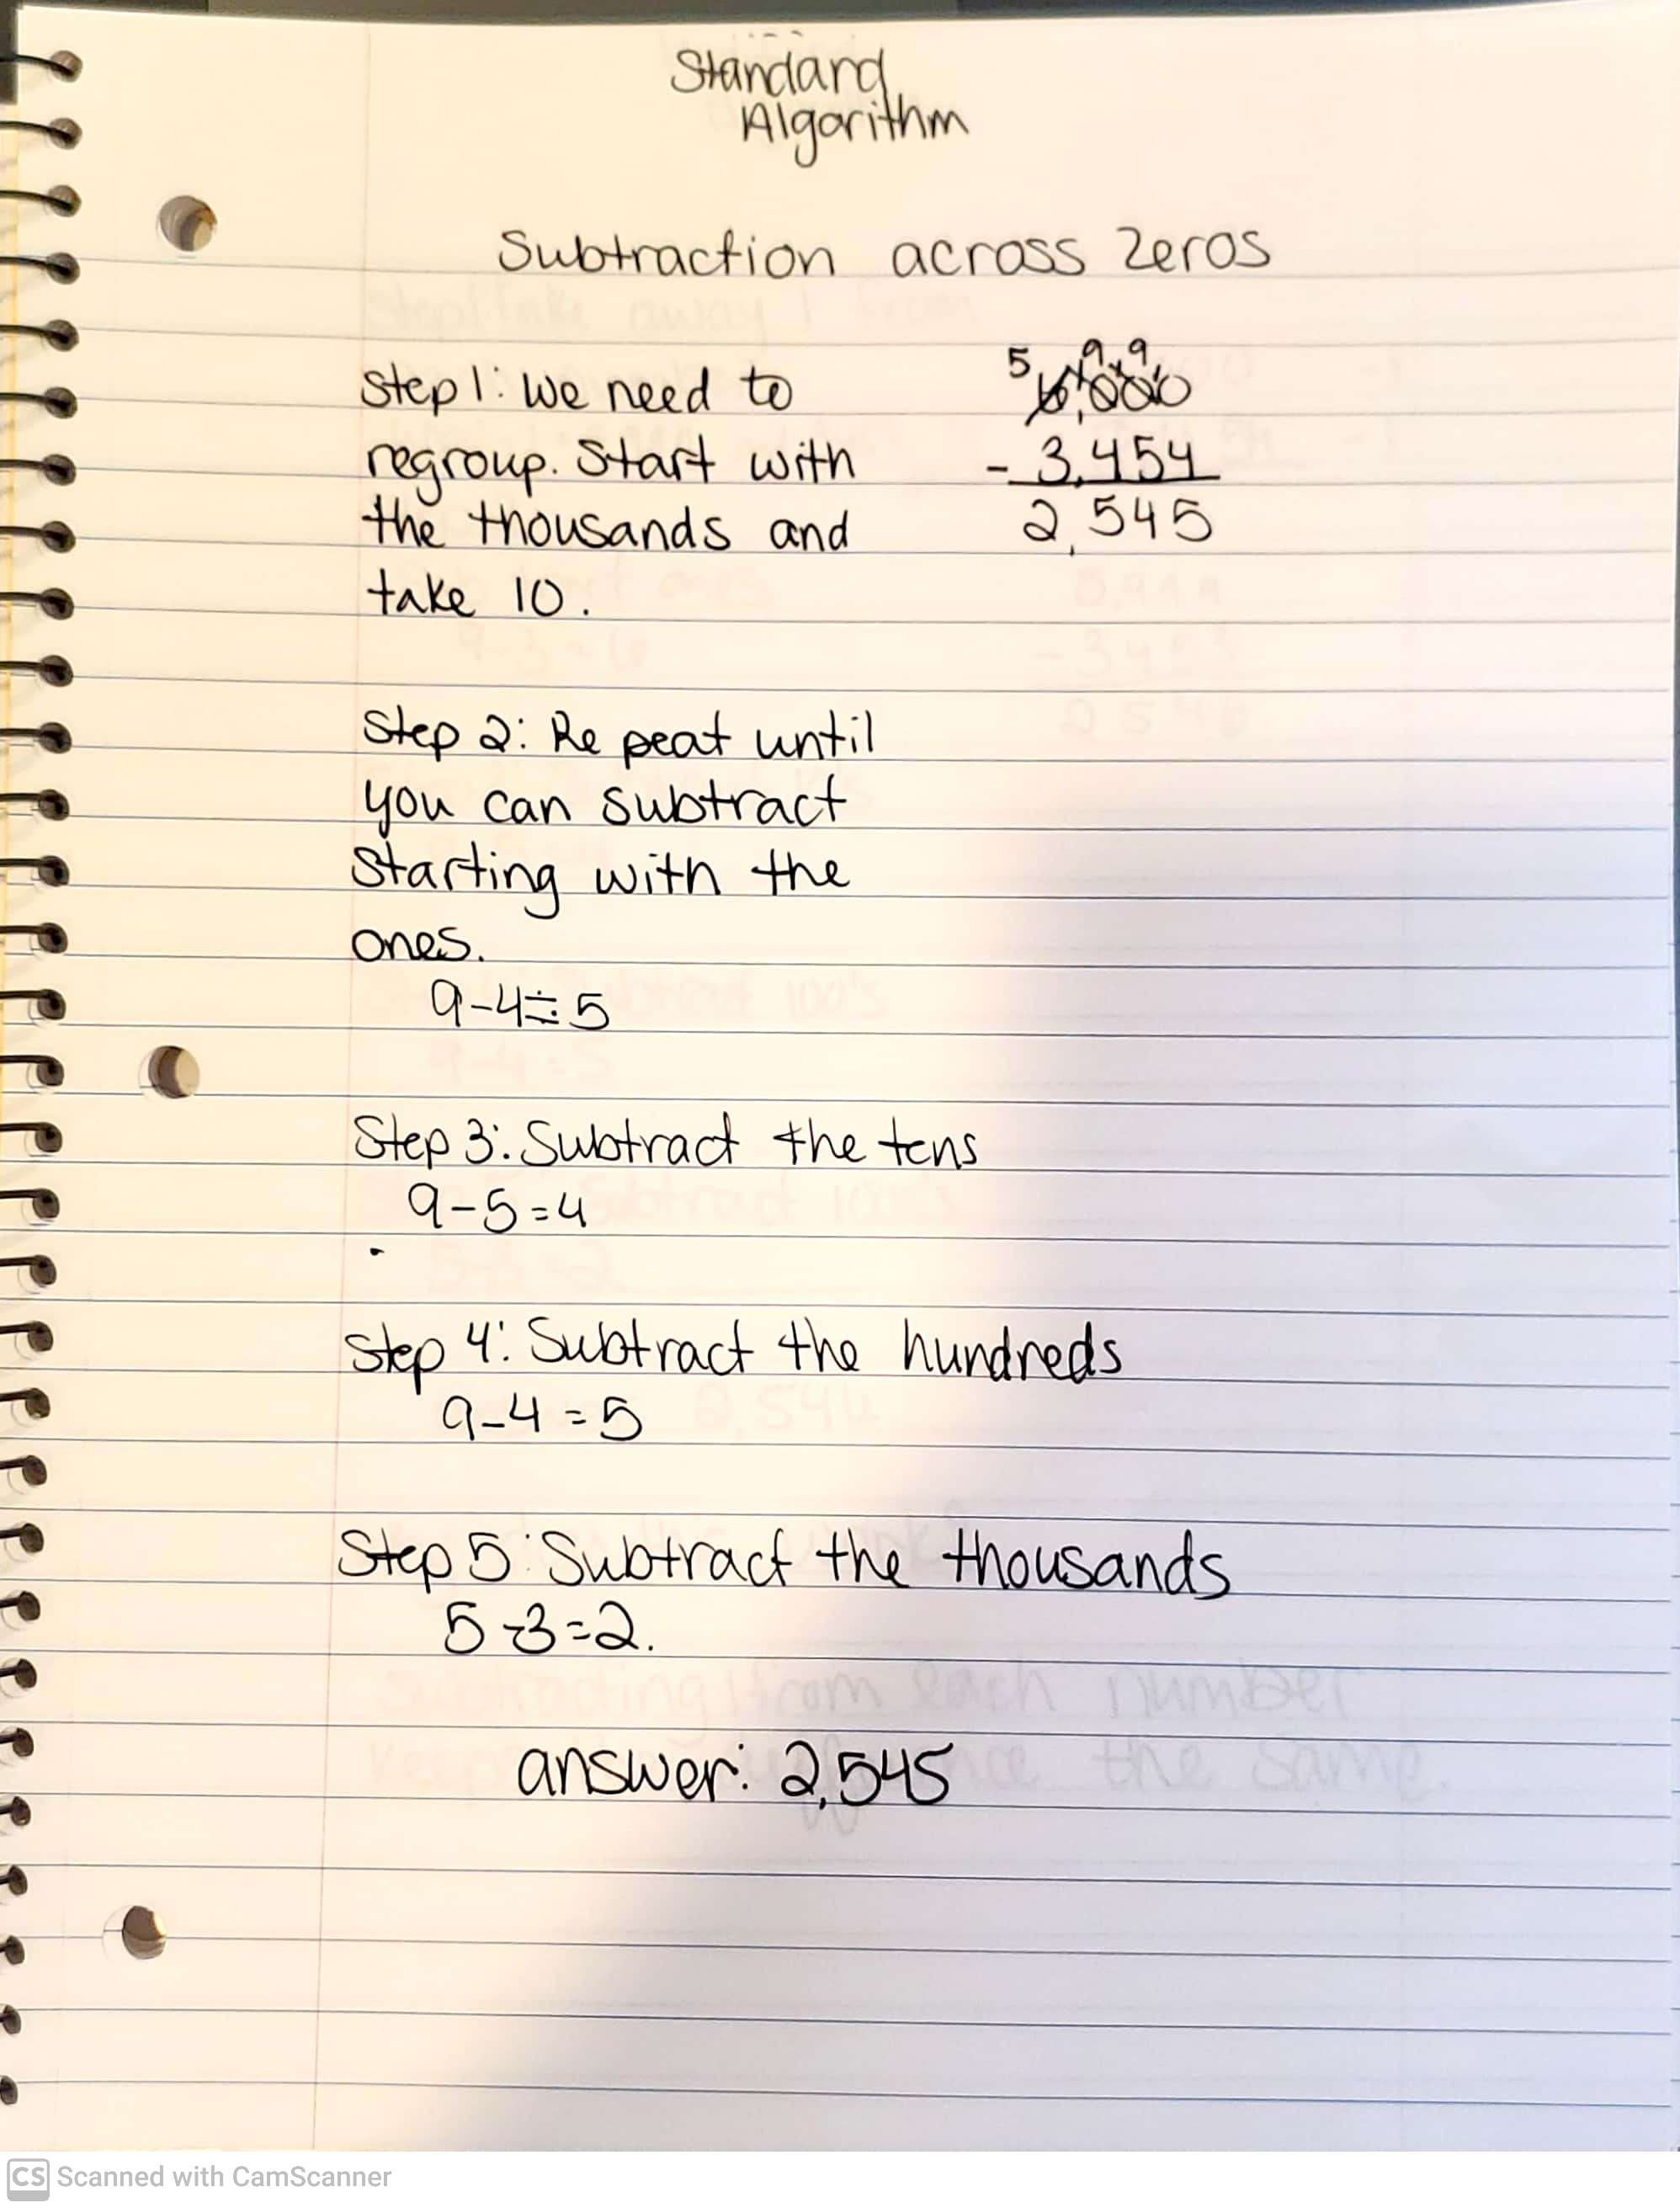 Standard
Algorithm
Subtraction across Zeros
Step 1: We need to
regroup. Start with
the thousands and
take 10.
5 9 9
6,000
- 3,454
2,545
Step 2: Re peat until
you can subtract
starting with the
ones.
9-4=5
Step 3: Subtract the tens
9-5=4
Step 4: Subtract the hundreds
9-4=5
Step 5: Subtract the thousands
5-3=2.
answer: 2,545
CS Scanned with CamScanner